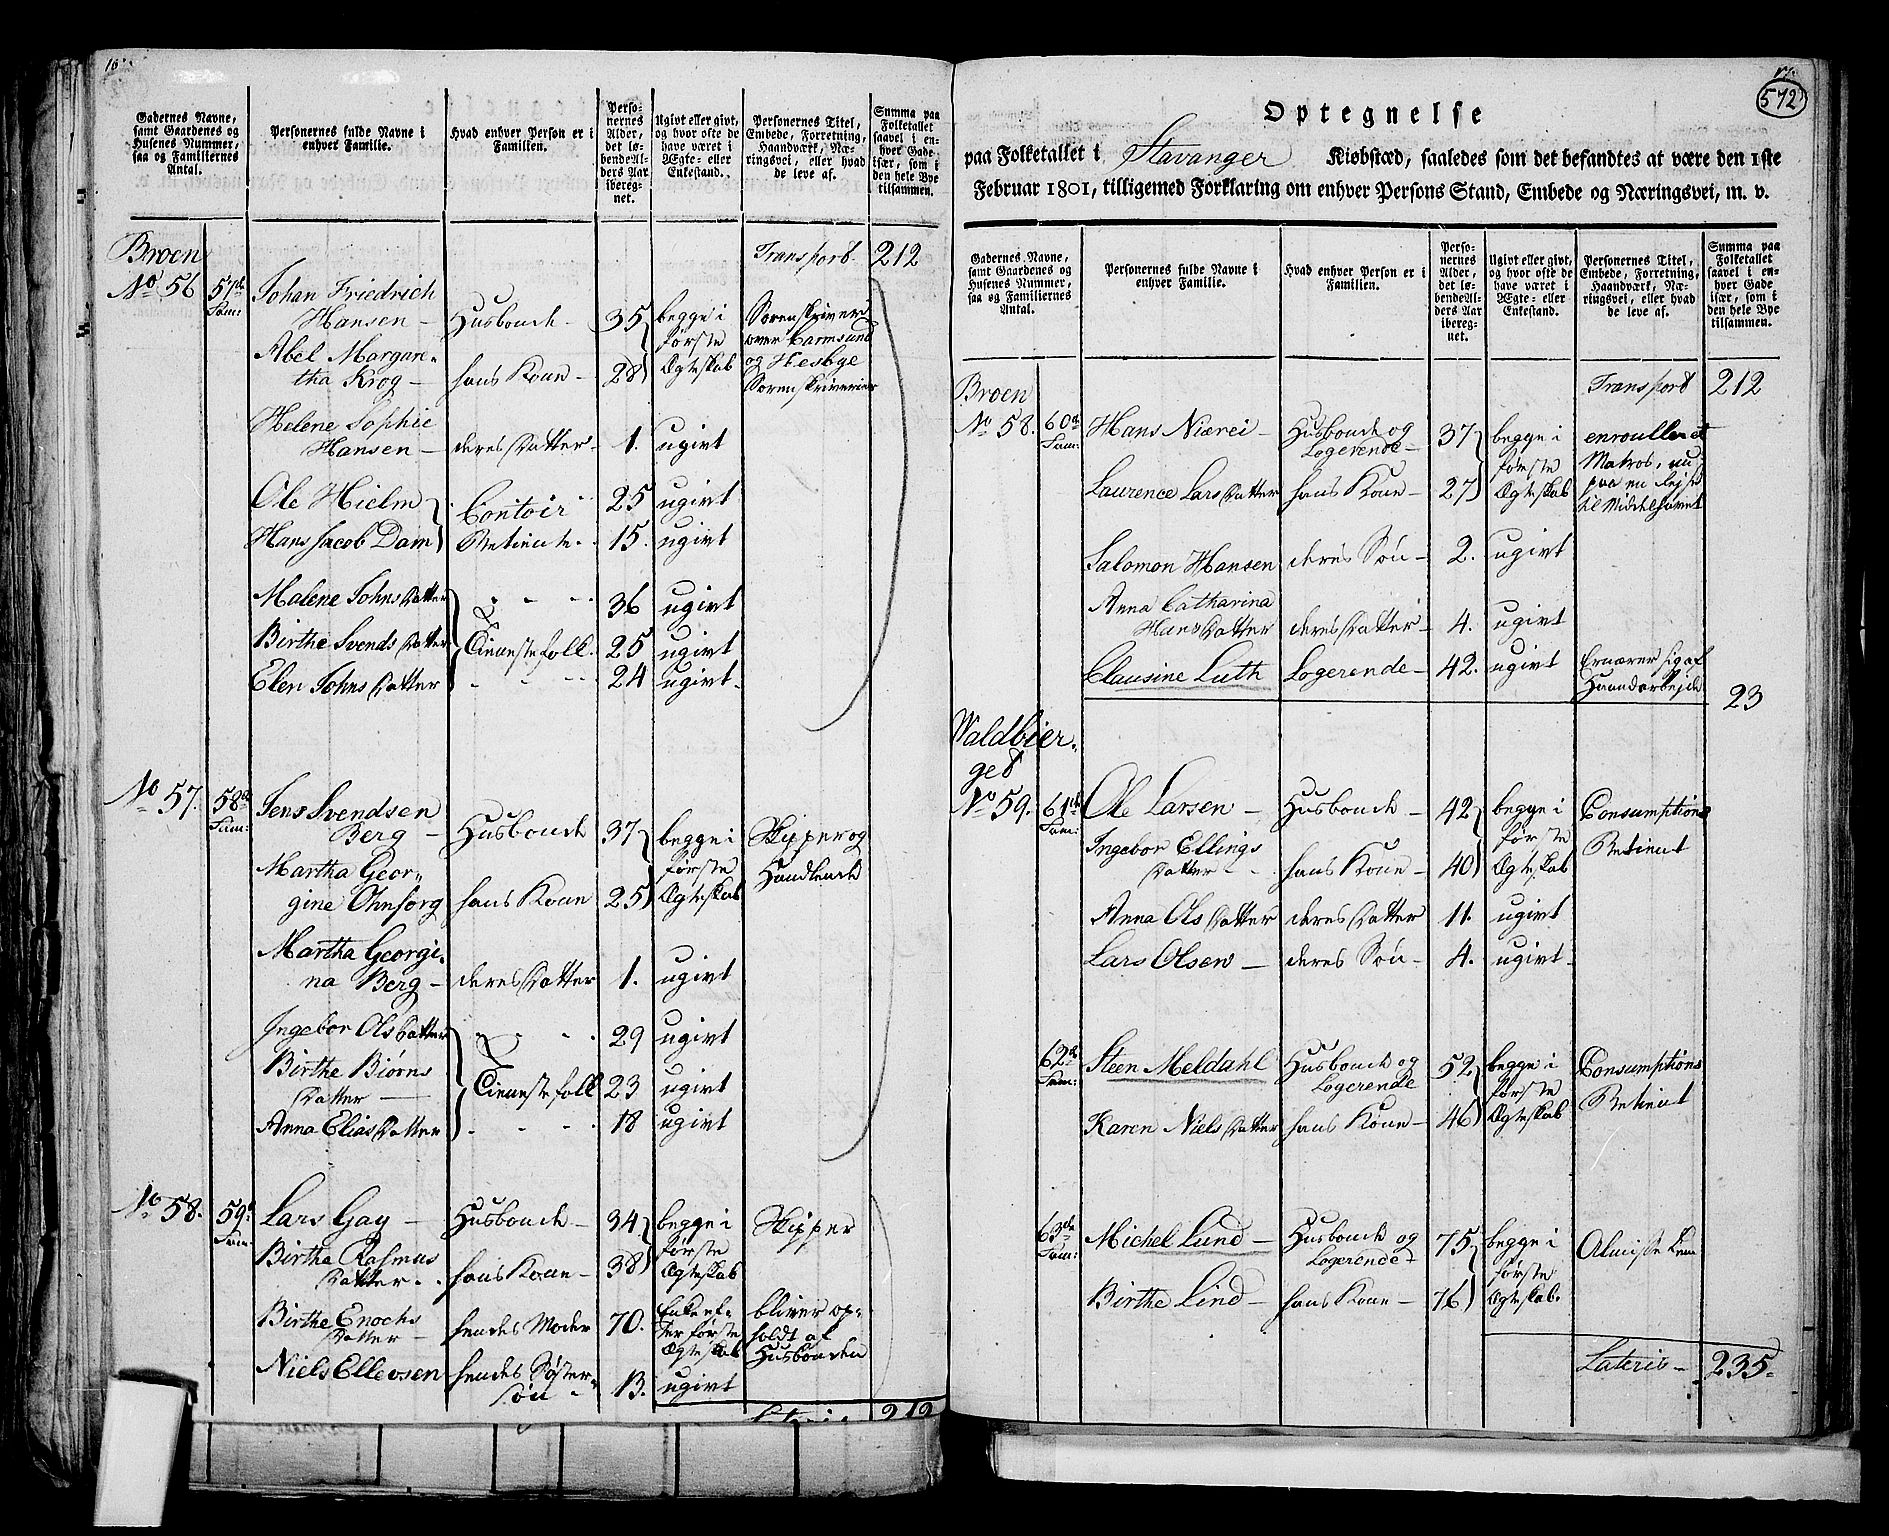 Gadernes Navne, samt Gaardenes og Husenes Nummer, saa og Familiernes Antal.
Personernes fulde Navne i enhver Familie.
Hvad enhver Person er i Familien.
Personernes Alder, det løbende Alders Aar iberegnet.
Ugivt eller givt, og hvor ofte de have været i Ægte- eller Enkestand.
Personernes Titel, Embede, Forretning, Haandværk, Næringsvei, eller hvad de leve af.
Summa paa Folketallet saavel i enhver Gade især, som i den hele Bye tilsammen.
Broen Transport 212
No 56 57de Fam: Johan Friedrich
Hansen - Husbonde - 35 begge i første Ægteskab Sorenskriver over Karmsund og Hesbye Sorenskriverier
Abel Margaretha Krog - hans Kone - 28
Helene Sophie
Hansen - deres Datter - 1. ugivt
Ole Hielm Contoir 25 ugivt
Hans Jacob Dam Betiente 15. ugivt
Malene Johns Datter 36 ugivt
Birthe Svends Datter Tienestefolk. 25 ugivt
Elen Johns Datter 24 ugivt.
No 57. 58de Fam: Jens Svendsen
Berg - Husbonde 37 begge i første Ægteskab Skipper og Handlende
Martha Georgine Ohnsorg hans Kone 25
Martha Georgina Berg - deres Datter 1. ugivt
Ingebor Ols Datter 29 ugivt
Birthe Biørns
Datter Tienestefolk 23 ugivt
Anna Elias Datter 18 ugivt
No 58. 59de Fam: Lars Gay - Husbonde - 34 begge i første Ægteskab Skipper
Birthe Rasmus
Datter hans Kone - 38
Birthe Enochs
Datter - hendes Moder 70. Enke efter første Ægteskab bliver opholdt af Husbonden
Niels Ellevsen hendes Søster Søn - 13. ugivt
212
17.
572
Optegnelse
paa Folketallet i Stavanger Kiøbstæd, saaledes som det befandtes at være den 1ste
Februar 1801, tilligemed Forklaring om enhver Persons Stand, Embede og Næringsvei, m. v.
Gadernes Navne, samt Gaardenes og Husenes Nummer, saa og Familiernes Antal.
Personernes fulde Navne i enhver Familie.
Hvad enhver Person er i Familien.
Personernes Alder, det løbende Alders Aar iberegnet.
Ugivt eller givt, og hvor ofte de have været i Ægte- eller Enkestand.
Personernes Titel, Embede, Forretning, Haandværk, Næringsvei, eller hvad de leve af.
Summa paa Folketallet saavel i enhver Gade især, som i den hele Bye tilsammen.
Broen Transport 212
No 58. 60de Fam: Hans Niærei - Husbonde og Logerende - 37 begge i første Ægteskab enroulleret Matros, nu paa en Rejse til Middelhavet
Laurence Lars Datter hans Kone - 27
Salomon Hansen deres Søn - 2. ugivt
Anna Catharina
Hans Datter deres Datter - 4. ugivt
Clausine Luth Logerende - 42. ugivt Ernærer sig af Haandarbejde
23
Waldbierget
No 59. 61de Fam: Ole Larsen - Husbonde - 42 begge i første Ægteskab Consumptions Betient
Ingebor Ellings
Datter - hans Kone - 40
Anna Ols Datter deres Datter 11. ugivt
Lars Olsen - deres Søn - 4. ugivt -
62de Fam: Steen Meldahl Husbonde og Logerende 52 begge i første Ægteskab Consumptions Betient
Karen Niels Datter hans Kone - 46
63de Fam: Michel Lund - Husbonde og Logerende - 75 begge i første Ægteskab. Almisse Lem
Birthe Lind - hans Kone - 76
Lateris - 235.